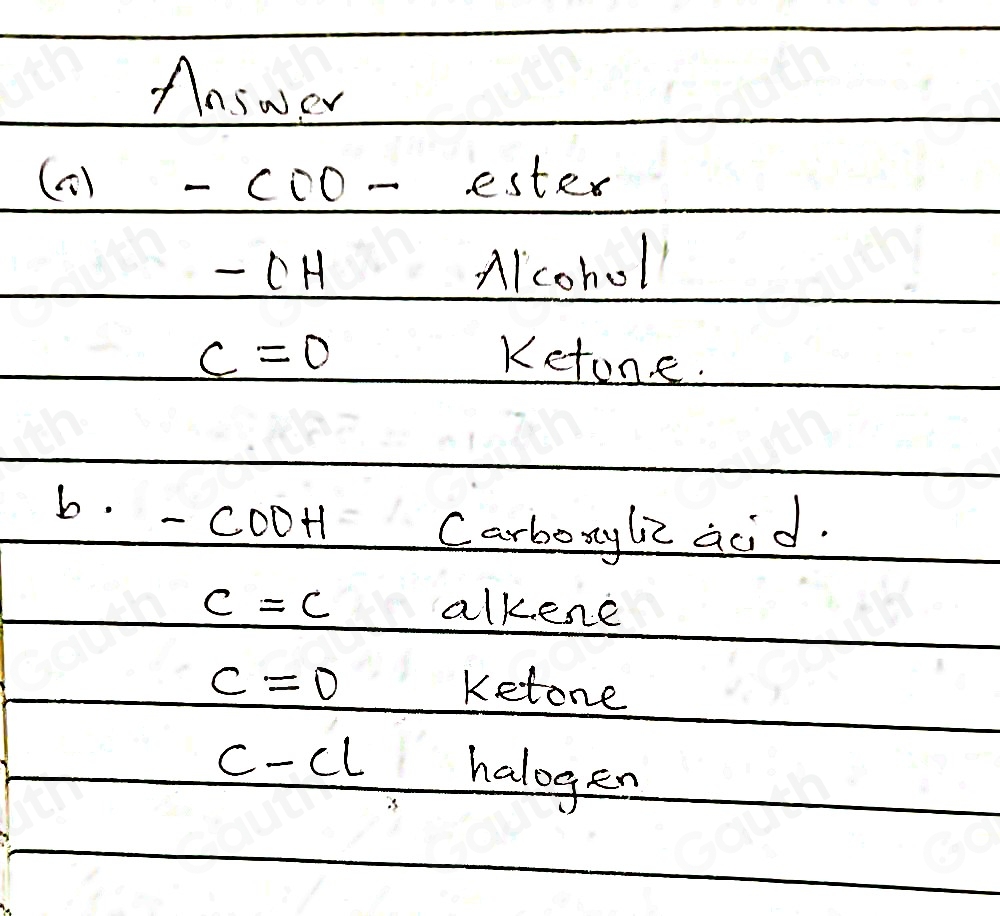 Answer
(a) - COO - ester
- OH Alcohol
C = O Ketone.
b. - COOH Carboxylic acid.
C = C alkene
C = O Ketone
C - Cl halogen